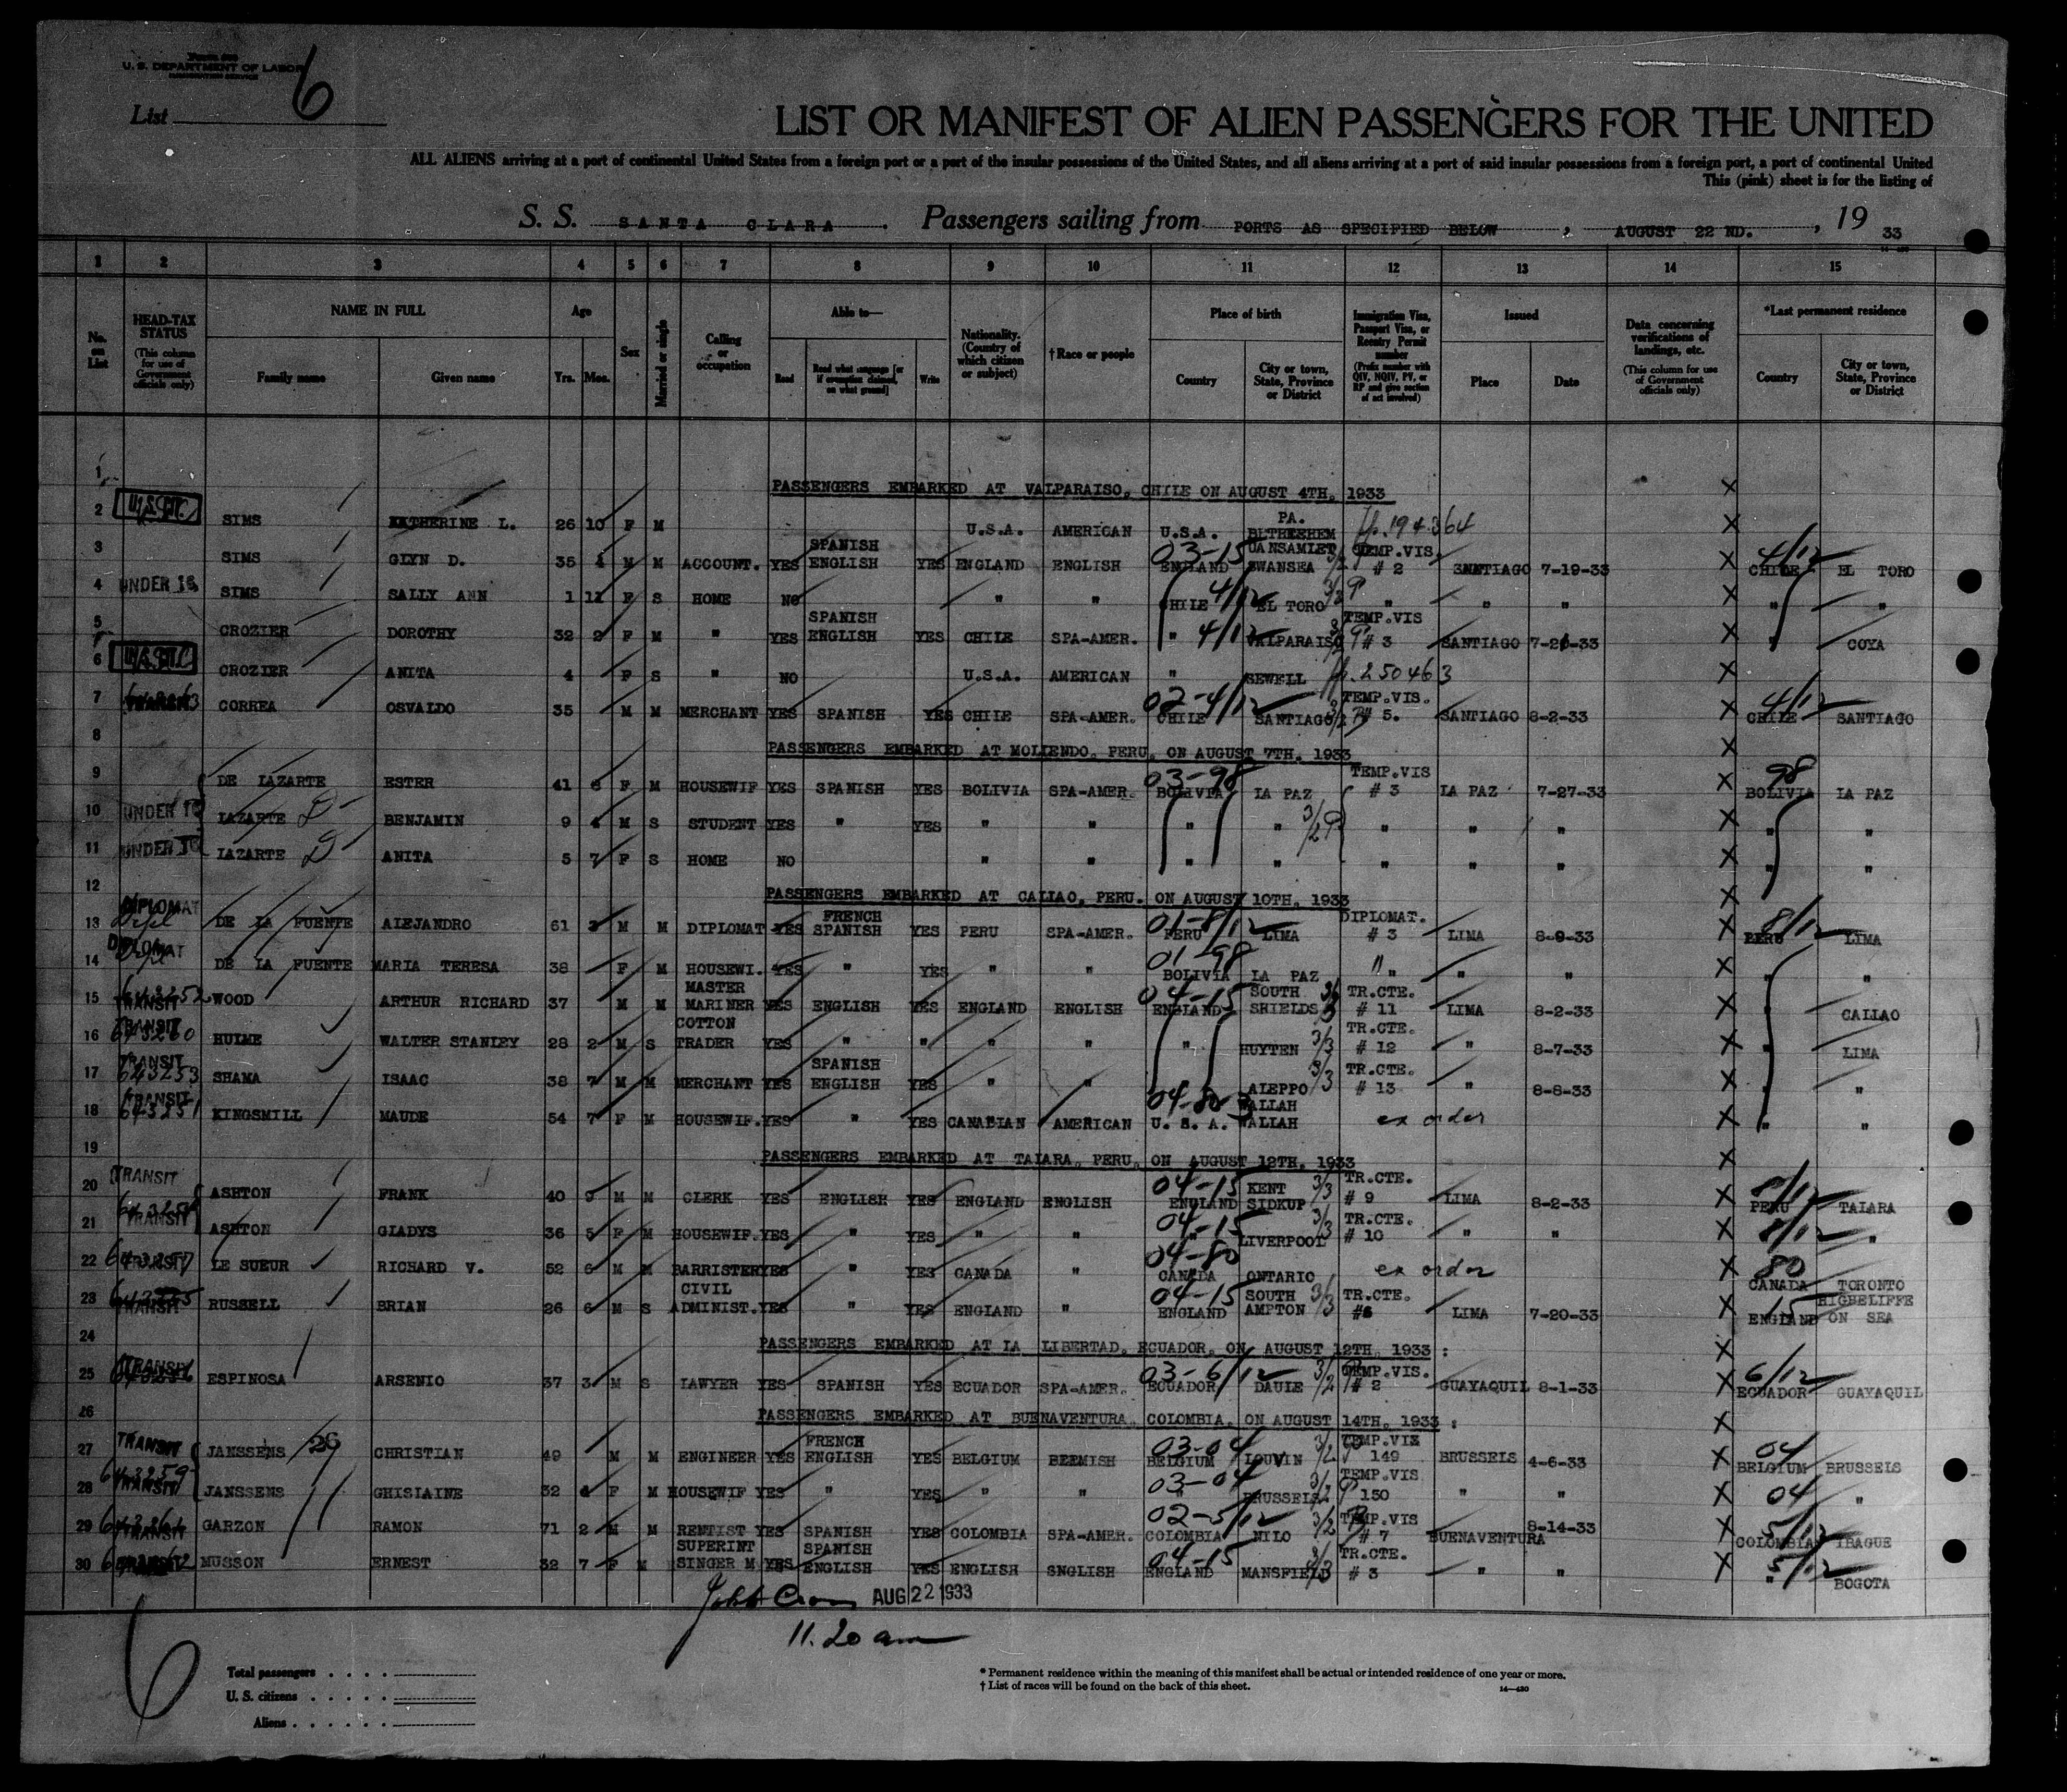 U. S. DEPARTMENT OF LABOR
List 6
LIST OR MANIFEST OF ALIEN PASSENGERS FOR THE UNITED
ALL ALIENS arriving at a port of continental United States from a foreign port or a port of the insular possessions of the United States, and all aliens arriving at a port of said insular possessions from a foreign port, a port of continental United
This (pink) sheet is for the listing of
S. S. SANTA CLARA . Passengers sailing from PORTS AS SPECIFIED BELOW , AUGUST 22 ND. , 19 33
1 2 3 4 5 6 7 8 9 10 11 12 13 14 15
No. on List
HEAD-TAX STATUS (This column for use of Government officials only)
NAME IN FULL Family name Given name
Age Yrs. Mos.
Sex
Married or single
Calling or occupation
Able to— Read Read what language [or if exemption claimed, on what ground] Write
Nationality. (Country of which citizen or subject)
†Race or people
Place of birth Country City or town, State, Province or District
Immigration Visa, Passport Visa, or Reentry Permit number (Prefix number with QIV, NQIV, PV, or RP and give section of act involved)
Issued Place Date
Data concerning verifications of landings, etc. (This column for use of Government officials only)
*Last permanent residence Country City or town, State, Province or District
1 PASSENGERS EMBARKED AT VALPARAISO, CHILE ON AUGUST 4TH. 1933 X
2 SIMS KATHERINE L. 26 10 F M U.S.A. AMERICAN U.S.A. PA. BLTHEEHEM 194364 X
3 SIMS GLYN D. 35 4 M M ACCOUNT. YES SPANISH ENGLISH YES ENGLAND ENGLISH 03-15 ENGLAND SWANSEA TEMP.VIS. # 2 SANTIAGO 7-19-33 X 4/12 CHILE EL TORO
4 UNDER 16 SIMS SALLY ANN 1 11 F S HOME NO " " CHILE 4/12 EL TORO " " " X " "
5 CROZIER DOROTHY 32 2 F M " YES SPANISH ENGLISH YES CHILE SPA-AMER. " 4/12 VALPARAISO TEMP.VIS # 3 SANTIAGO X " COYA
6 CROZIER ANITA 4 F S " NO U.S.A. AMERICAN " SEWELL 250463 X
7 TRANSIT CORREA OSVALDO 35 M M MERCHANT YES SPANISH YES CHILE SPA-AMER. 02-4/12 CHILE SANTIAGO TEMP.VIS. # 5. SANTIAGO 8-2-33 X 4/12 CHILE SANTIAGO
8 PASSENGERS EMBARKED AT MOLLENDO, PERU, ON AUGUST 7TH. 1933 X
9 DE LAZARTE ESTER 41 6 F M HOUSEWIF YES SPANISH YES BOLIVIA SPA-AMER. 03-98 BOLIVIA LA PAZ TEMP.VIS # 3 LA PAZ 7-27-33 X 98 BOLIVIA LA PAZ
10 UNDER 16 LAZARTE D BENJAMIN 9 4 M S STUDENT YES " YES " " " " 3/2 9 " " " X " "
11 UNDER 16 LAZARTE D ANITA 5 7 F S HOME NO " " " " " " " X " "
12 PASSENGERS EMBARKED AT CALLAO, PERU. ON AUGUST 10TH. 1933 X
13 DIPLOMAT DE LA FUENTE ALEJANDRO 61 3 M M DIPLOMAT YES FRENCH SPANISH YES PERU SPA-AMER. 01-8/12 PERU LIMA DIPLOMAT. # 3 LIMA 8-9-33 X 8/12 PERU LIMA
14 DIPLOMAT DE LA FUENTE MARIA TERESA 38 F M HOUSEWI. YES " YES " " 01-98 BOLIVIA LA PAZ " " " X " "
15 TRANSIT 643252 WOOD ARTHUR RICHARD 37 M M MASTER MARINER YES ENGLISH YES ENGLAND ENGLISH 04-15 ENGLAND SOUTH SHIELDS 3/3 TR.CTE. # 11 LIMA 8-2-33 X " CALLAO
16 TRANSIT 643260 HULME WALTER STANLEY 28 2 M S COTTON TRADER YES " " " " " HUYTEN 3/3 TR.CTE. # 12 " 8-7-33 X " LIMA
17 TRANSIT 643253 SHAMA ISAAC 38 7 M M MERCHANT YES SPANISH ENGLISH YES " " ALEPPO 3/3 TR.CTE. # 13 " 8-8-33 X " "
18 TRANSIT 643251 KINGSMILL MAUDE 54 7 F M HOUSEWIF. YES " YES CANADIAN AMERICAN 04-80 U. S. A. WALLAH WALLAH ex order X " "
19 PASSENGERS EMBARKED AT TALARA, PERU, ON AUGUST 12TH. 1933 X
20 TRANSIT ASHTON FRANK 40 9 M M CLERK YES ENGLISH YES ENGLAND ENGLISH 04-15 ENGLAND KENT SIDKUP 3/3 TR.CTE. # 9 LIMA 8-2-33 X 8/12 PERU TALARA
21 TRANSIT ASHTON GLADYS 36 5 F M HOUSEWIF. YES " YES " " 04-15 " LIVERPOOL 3/3 TR.CTE. # 10 " " X 8/12 "
22 TRANSIT LE SUEUR RICHARD V. 52 6 M M BARRISTER YES " YES CANADA " 04-80 CANADA ONTARIO ex order X 80 CANADA TORONTO
23 TRANSIT RUSSELL BRIAN 26 6 M S CIVIL ADMINIST. YES " YES ENGLAND " 04-15 ENGLAND SOUTH AMPTON 3/3 TR.CTE. #6 LIMA 7-20-33 X 15 ENGLAND HIGHELIFFE ON SEA
24 PASSENGERS EMBARKED AT LA LIBERTAD, ECUADOR, ON AUGUST 12TH. 1933 : X
25 TRANSIT ESPINOSA ARSENIO 37 3 M S LAWYER YES SPANISH YES ECUADOR SPA-AMER. 03-6/12 ECUADOR DAULE 3/2 TEMP.VIS. # 2 GUAYAQUIL 8-1-33 X 6/12 ECUADOR GUAYAQUIL
26 PASSENGERS EMBARKED AT BUENAVENTURA, COLOMBIA, ON AUGUST 14TH. 1933 : X
27 TRANSIT JANSSENS 29 CHRISTIAN 49 M M ENGINEER YES FRENCH ENGLISH YES BELGIUM 03-04 BELGIUM LOUVIN 3/2 TEMP.VIS 149 BRUSSELS 4-6-33 X 04 BELGIUM BRUSSELS
28 643259 TRANSIT JANSSENS GHISLAINE 32 4 F M HOUSEWIF YES " YES " " 03-04 " BRUSSELS TEMP.VIS 150 " " X 04 "
29 TRANSIT GARZON RAMON 71 2 M M RENTIST YES SPANISH YES COLOMBIA SPA-AMER. 02-5/12 COLOMBIA NILO 3/2 TEMP.VIS # 7 BUENAVENTURA 8-14-33 X 5/12 COLOMBIA IBAGUE
30 MUSSON ERNEST 32 7 F M SUPERINT SINGER M YES SPANISH ENGLISH YES ENGLISH SNGLISH 04-15 ENGLAND MANSFIELD 3/3 TR.CTE. # 3 " " X 5/12 " BOGOTA
AUG 22 1933
11.20 am
6
Total passengers . . . .
U. S. citizens . . . . .
Aliens . . . . . .
* Permanent residence within the meaning of this manifest shall be actual or intended residence of one year or more.
† List of races will be found on the back of this sheet.
14—430